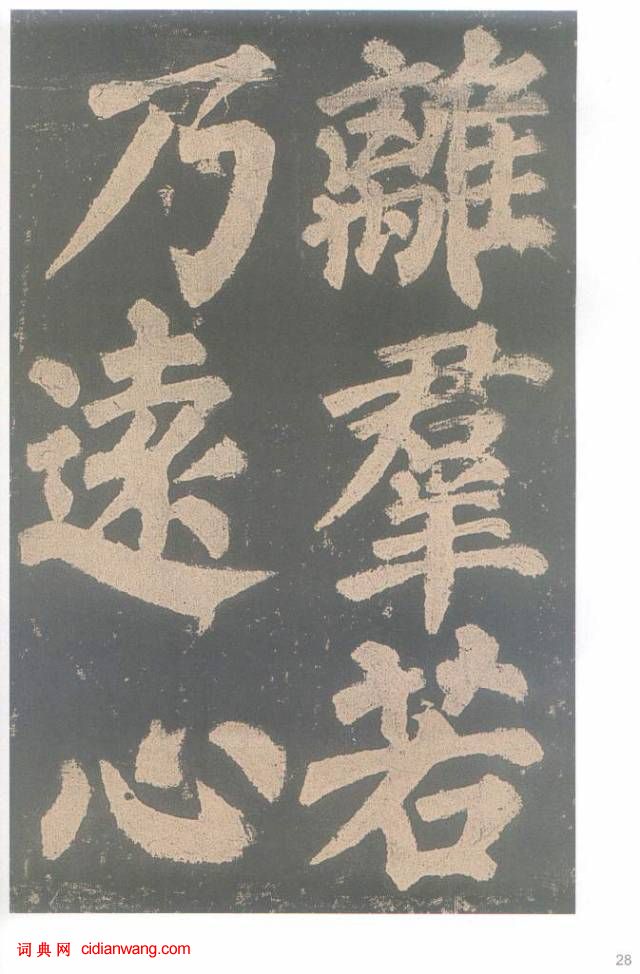 離羣若
乃遠心
词典网 cidianwang.com
28